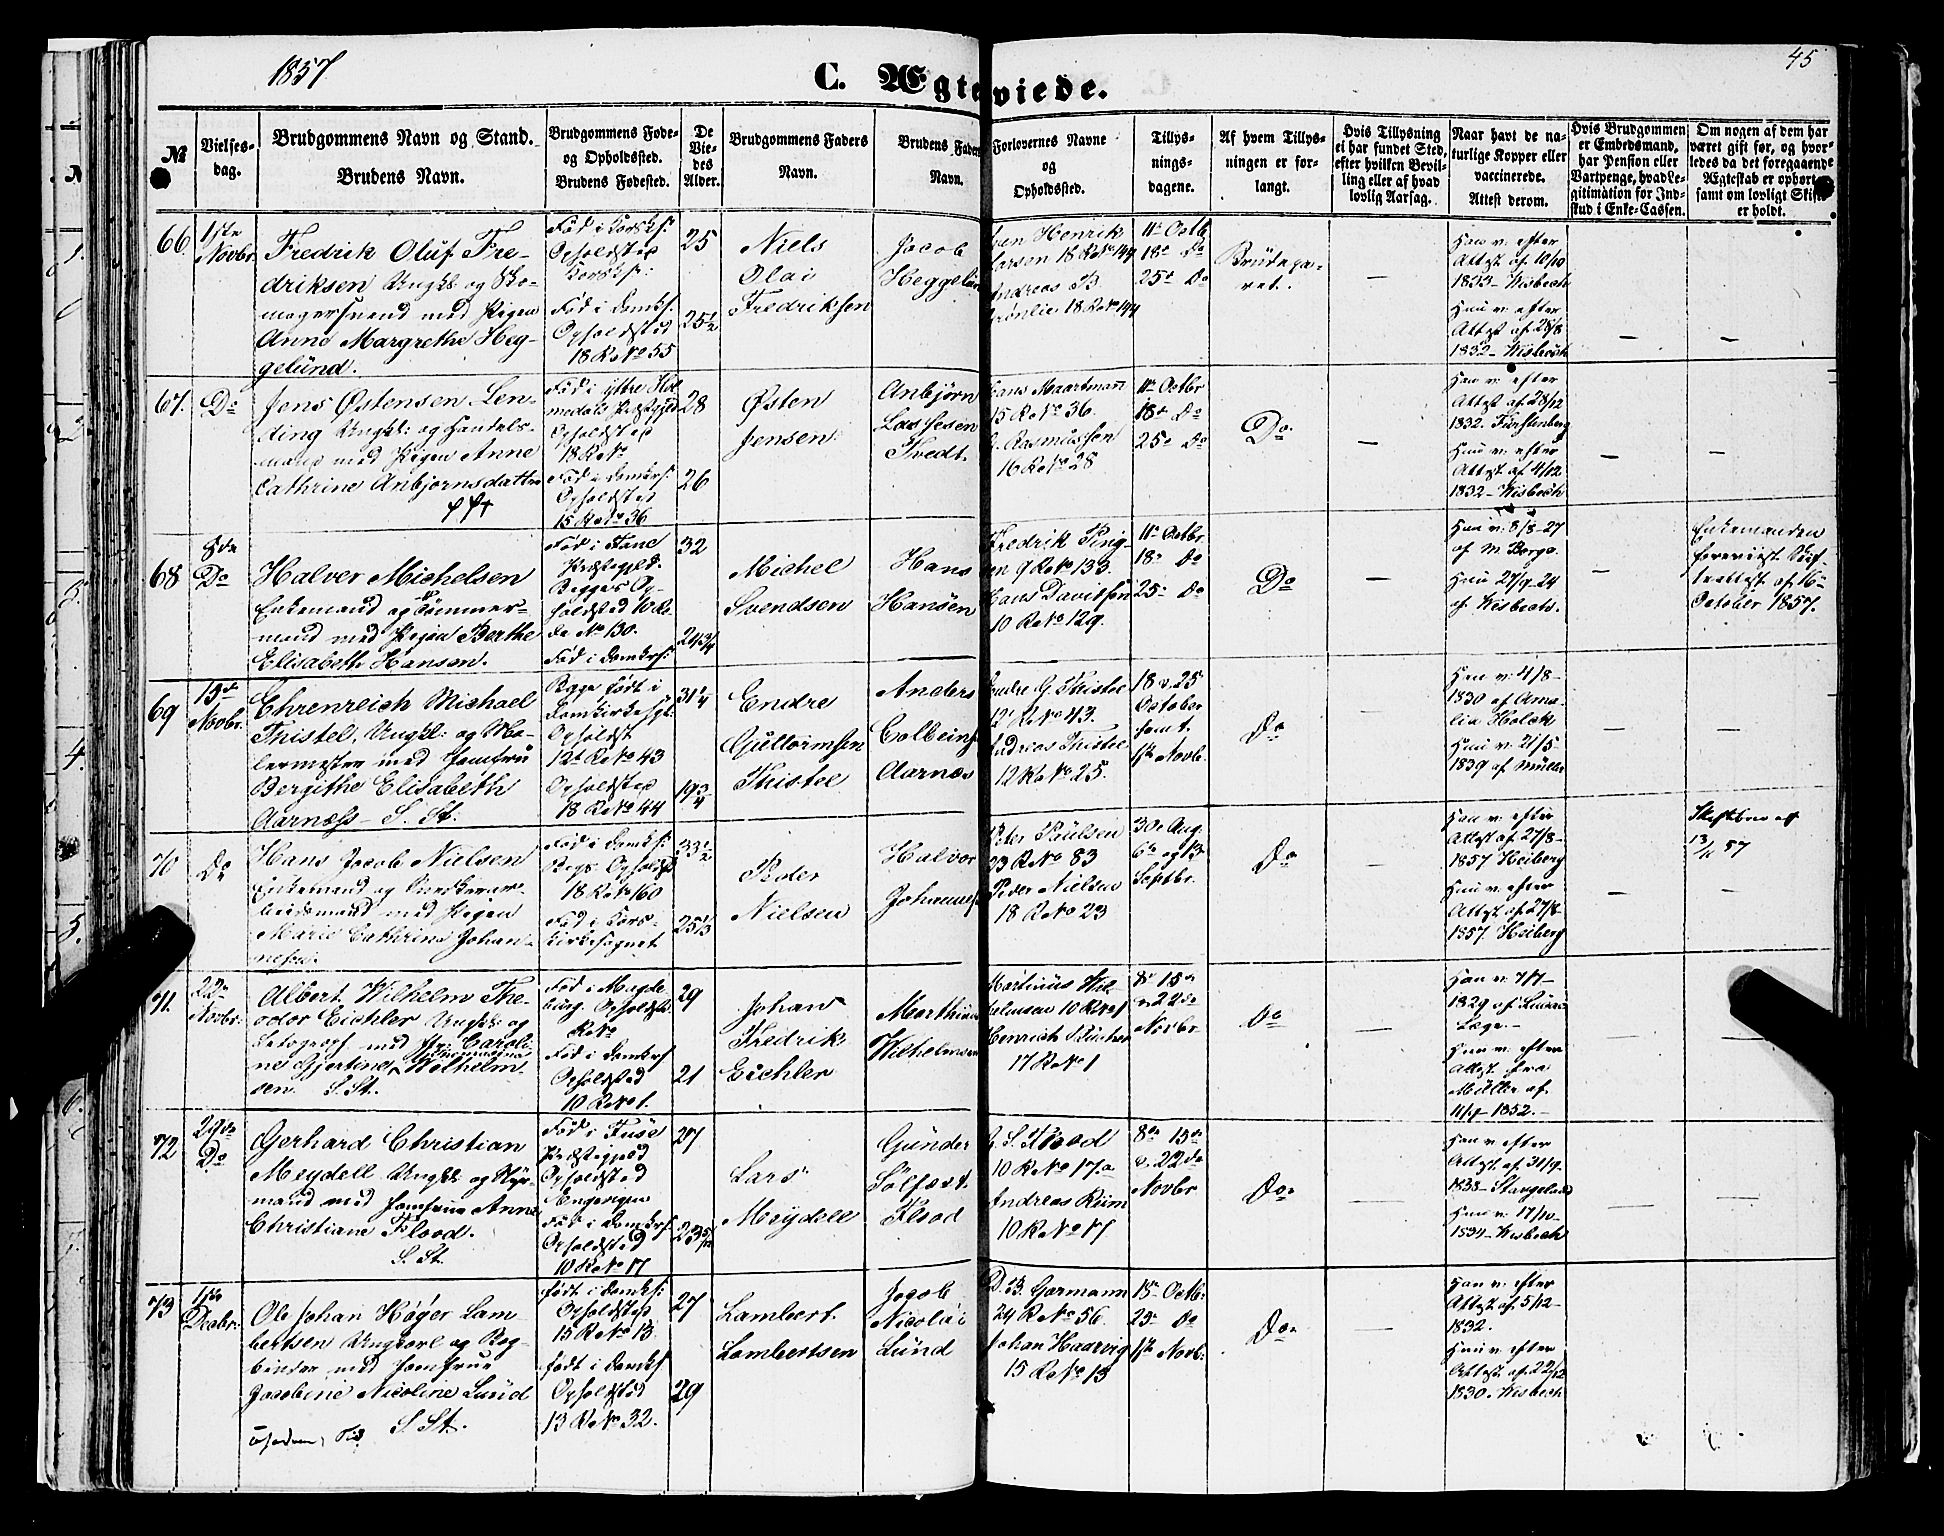 1857
C. Ægtevie­de.
45
№
Vielses-
dag.
Brudgommens Navn og Stand.
Brudens Navn.
Brudgommens Føde-
og Opholdssted.
Brudens Fødested.
De
Vie-
des
Alder.
Brudgommens Faders
Navn.
Brudens Faders
Navn.
Forlovernes Navne
og
Opholdssted.
Tillys-
nings-
dagene.
Af hvem Tillys-
ningen er for-
langt.
Hvis Tillysning
ei har fundet Sted,
efter hvilken Bevil-
ling eller af hvad
lovlig Aarsag.
Naar havt de na-
turlige Kopper eller
vaccinerede.
Attest derom.
Hvis Brudgommen
er Embedsmand,
har Pension eller
Vartpenge, hvad Le-
gitimation for Ind-
skud i Enke-Cassen.
Om nogen af dem har
været gift før, og hvor-
ledes da det foregaaende
Ægteskab er ophørt
samt om lovligt Skifte
er holdt.
66.
1ste
Novbr
Fredrik Oluf Fre-
driksen Ungkl: og Sko-
magersvend med Pigen
Anne Margrethe Heg-
gelund.
Fød i Korsks:
Opholdsted
Korsks:
Fød i Domks:
Opholdsted
18 R No 55
25
25½
Niels
Olai
Fredriksen
Jacob
Heggelund
Henrik
Larsen 18 R No 144
Andreas B.
Grønlie 18 R No 144
11te Octb
18de Do
25de Do
Brudepa-
ret.
—
Han v. efter
Attest af 10/10
1833 - Wisbech
Hun v. efter
Attest af 28/8
1832 - Wisbech
—
—
67.
Do
Jens Østensen Len-
ding Ungkl: og Handels-
mand med Pigen Anne
Cathrine Anbjørnsdatter
Fød i yttre Hol-
medals Præstegjeld
Opholdsted
18 R No
Fød i Domks:
Opholdsted
15 R No 36
28
26
Østen
Jensen
Anbjørn
Lassesen
Tvedt.
Hans Maartmann
15 R No 36.
Rasmussen
16 R No 28
11te Octbr
18de Do
25de Do
Do
—
Han v. efter
Attest af 28/12
1832. Fürstenberg
Hun v. efter
Attest af 4/12
1832 - Wisbech
—
—
68
8de
Do
Halver Michelsen
Enkemand og Tømmer-
mand med Pigen Berthe
Elisabeth Hansen.
Fød i Fane
Præstegjeld.
Begges Op-
holdsted 10 R
No 130.
Fød i Domks:
32
24¾
Michel
Svendsen
Hans
Hansen
Fredrik Ping-
en 9 R No 133
Hans Davidsen
10 R No 129.
11te Octbr
18de Do
25de Do
Do
—
Han v. 8/8-27
af M. Borge.
Hun 27/9-24
af Wisbech.
—
Enkemanden
foreviist Skif-
teattest af 16de
October 1857.
69
15de
Novbr.
Ehrenreich Michael
Thistel, Ungkl: og Ma-
lermester med Jomfru
Bergithe Elisabeth
Aarness - S. St.
Begge født i
Domkirkesgt:
Opholdst
12t R No 43
Opholdsted
18 R No 44
31¼
19¾
Endre
Guttormsen
Thistel
Anders
Colbeins
Aarnes
Endre G. Thistel
12t R No 43.
Andreas Thistel
12 R No 25.
18 & 25
October
samt
1ste Novbr.
Do
—
Han v. 4/8-
1830 af Ama-
lia Holck
Hun v. 21/5-
1839 af Müller
—
—
70
Do
Hans Jacob Nielsen
Enkemand og
med Pigen
Marie Cathrine Johan-
nesen.
Fød i Domks:
Begs Opholdst
18 R No 160
Fød i Kors-
kirkesognet
33½
25⅓
Peder
Nielsen
Halvor
Johannes
Peter Paulsen
23 R No 83
Peder Nielsen
18 R No 23
30te Aug:
6te og 13de
Septbr.
Do
—
Han v. efter
Attest af 27/8-
1857 Heiberg
Hun v. efter
Attest af 27/8
1857. Heiberg
—
Skiftebrev af
13/11 57
—
71.
22de
Novbr:
Albert Wilhelm The-
odor Eichler Ungkl: og
med Jfr. Caroli-
ne Gjertine Wilhelm-
sen. S. St.
Fød i Magde-
burg. Opholdst.
R No
Fød i Domks
Opholdsted
10 R No 1.
29
21
Johan
Fredrik
Eichler
Marthinus
Wilhelmsen
Martinus Wil-
helmsen 10 R No 1
Henrich Büscher
17 R No 1
8de 15de
& 22de
Novbr
Do
—
Han v. 7/7-
1829 af
Læge.-
Hun v. efter
Attest fra
Müller af
11/9-1852.-
—
—
72
29de
Do
Gerhard Christian
Meydell Ungkl: og Styr-
mand med Jomfrue Anne
Christiane Flood.
S. St.
Fød i Fuse
Præstegjeld
Opholdsted
Engevigen
Fød i Domks:
Opholdsted
10 R No 17
27
23 5/12
Lars
Meydell
Gunder
Sølfæst
Flood
G. S. Flood
10 R No 17.a
Andreas Riim
10 R No 17
8de 15de
& 22de
Novbr
Do
—
Han v. efter
Attest af 31/9.
1838 - Stangeland
Hun v. 17/10-
1834 - Wisbech
—
—
73
1ste
Decbr:
Ole Johan Høyer Lam-
bertsen Ungkarl og Bog-
binder med Jomfrue
Jacobine Nicoline Lund
S. St.
født i Domks:
Opholdsted
15 R No 13.
født i Domks
Opholdsted
13 R No 32.
27
29
Lambert
Lambertsen
Jacob
Nicolai
Lund
D. B. Garmann
24 R No 56.
Johan Haarvig
15 R No 13
18de Octb:
25de Do
1ste Novb:
Do
—
Han v. efter
Attest af 5/12-
1832.
Hun v. efter
Attest af 22/12
1830. Wisbech